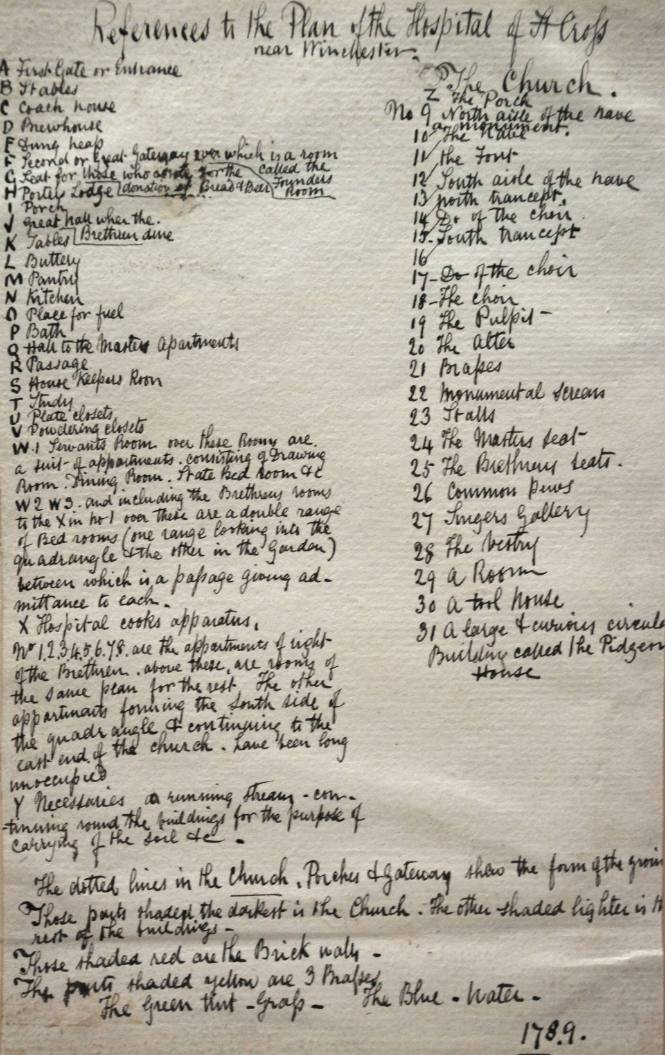 References to the Plan of the Hospital of St Cross
near Winchester.
A First Gate or Entrance
B Stables
C Coach house
D Brewhouse
E Dung heap
F Second or Great Gateway over which is a room
called the
Founders
Room
G Seat for those who for the
donation of Bread & Beer
H Porters Lodge
I Porch
J Great hall when the.
Brethren dine
K Tables
L Buttery
M Pantry
N Kitchen
O Place for fuel
P Bath
Q Hall to the Masters Apartments
R Passage
S House Keepers Room
T Study
U Plate closets
V Powdering closets
W.1 Servants Room over these Rooms are
a suit of appartments. consisting of Drawing
Room. Dining Room. State Bed Room &c
W2 W3. and including the Brethrens rooms
to the X in No 1 over these are a double range
of Bed rooms (one range looking into the
quadrangle & the other in the Garden)
between which is a passage giving ad-
mittance to each.
X Hospital cooks apparatus.
No 1.2.3.4.5.6.7.8. are the appartments of eight
of the Brethren. above these are rooms of
the same plan for the rest. The other
appartments forming the South side of
the quadrangle & continuing to the
east end of the church. have been long
unoccupied
Y Necessaries a running stream - con-
tinuing round the buildings for the purpose of
carrying of the soil &c.
The Church.
Z The Porch
No 9 North aisle of the nave
a monument.
10 The Nave
11 the Font
12 South aisle of the nave
13 north trancept.
14 Do of the choir
15 South trancept
16
17 Do of the choir
18 The choir
19 The Pulpit
20 The Alter
21 Brasses
22 monumental screens
23 Stalls
24 The Masters seat
25 The Brethrens seats.
26 Common pews
27 Singers Gallery
28 The Vestry
29 A Room
30 A tool house
31 A large & curious circula
Building called the Pidgeon
House
The dotted lines in the Church. Porches & Gateway show the form of the groin
Those parts shaded the darkest is the Church. The other shaded lighter is th
rest of the buildings -
Those shaded red are the Brick walls -
The parts shaded yellow are 3 Brasses
The Green tint - Grass - The Blue - Water -
1789.